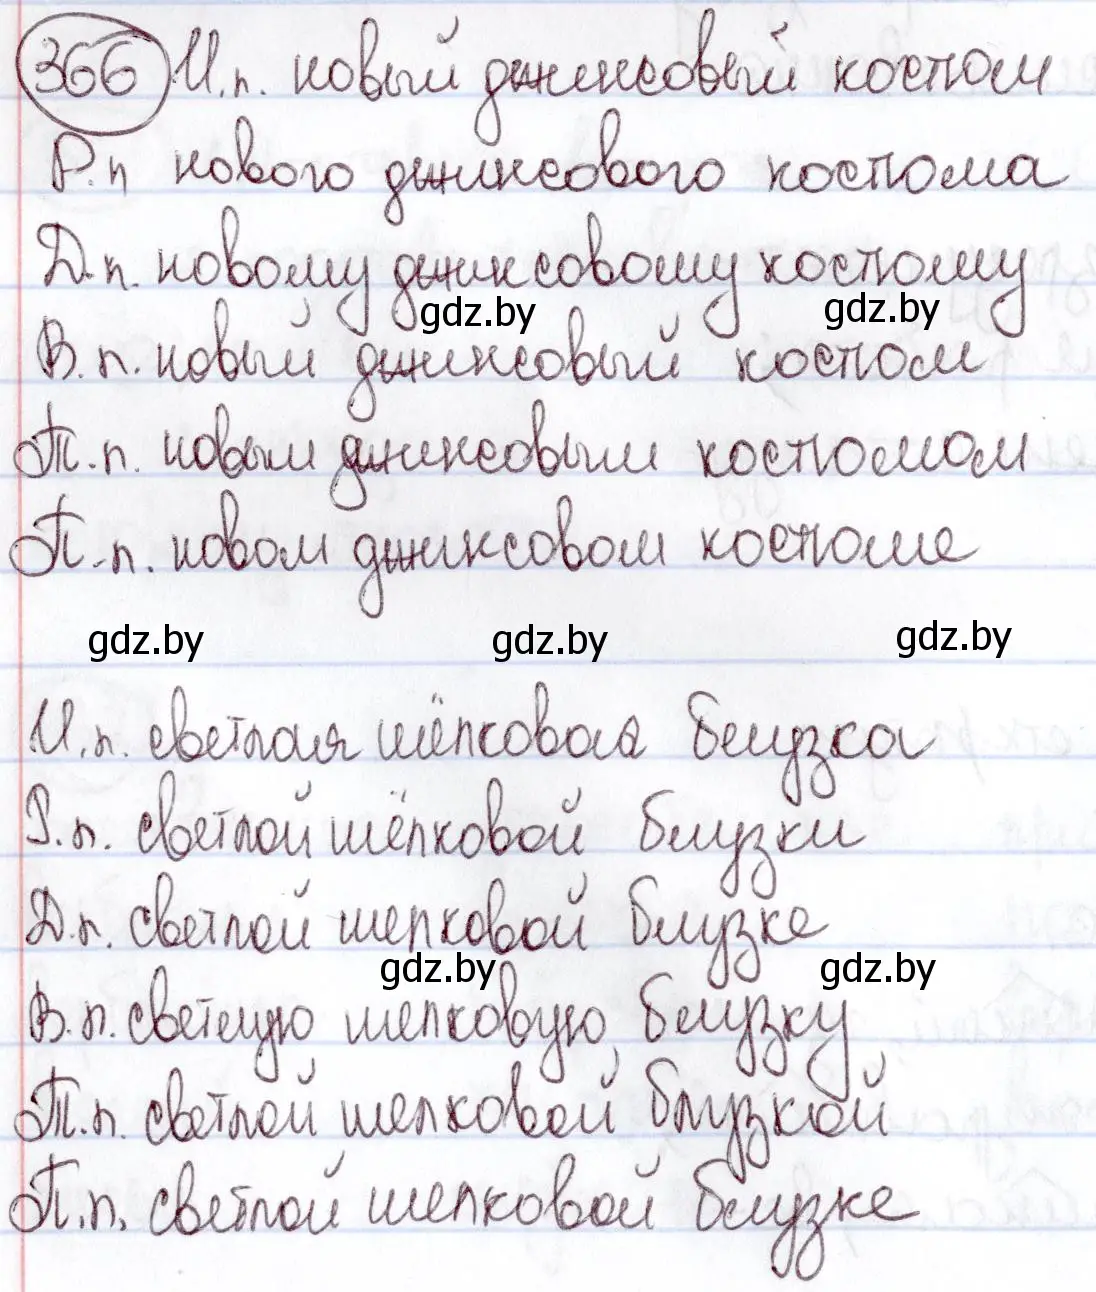 366 И.п. новый джинсовый костюм
Р.п нового джинсового костюма
Д.п. новому джинсовому костюму
gdz.by gdz.by
В.п. новый джинсовый костюм
Т.п. новым джинсовым костюмом
П.п. новом джинсовом костюме
gdz.by gdz.by gdz.by
И.п. светлая шёлковая блузка
Р.п. светлой шёлковой блузки
Д.п. светлой шелковой блузке
gdz.by gdz.by
В.п. светлую шелковую блузку
Т.п. светлой шелковой блузкой
П.п. светлой шелковой блузке